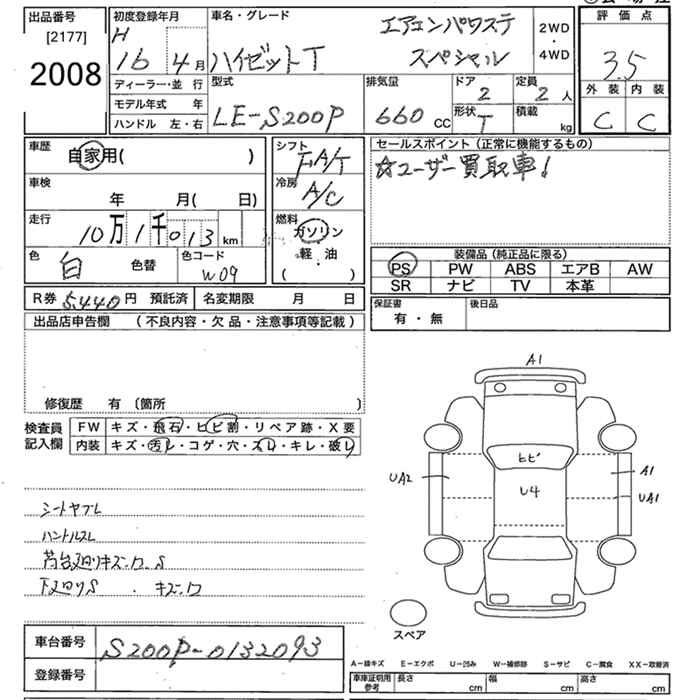 出品番号
[2177]
2008
初度登録年月
H
16年4月
車名・グレード
ハイゼットT
エアコンパワステ
スペシャル
2WD
・
4WD
評価点
3.5
外装 内装
C C
ディーラー・並 行
モデル年式 年
ハンドル 左・右
型式
LE-S200P
排気量
660 cc
ドア
2
形状
T
定員
2人
積載
kg
車歴
自家用( )
車検
年 月( 日)
走行
10万1千013km
色
白
色替
色コード
W09
シフト
FA/T
冷房
A/C
燃料
ガソリン
軽・油
( )
セールスポイント(正常に機能するもの)
☆ユーザー買取車!
装備品(純正品に限る)
PS PW ABS エアB AW
SR ナビ TV 本革
R券 5,440円 預託済
名変期限 月 日
保証書
有・無
後日品
出品店申告欄 (不良内容・欠品・注意事項等記載)
修復歴 有 〔箇所 )
検査員
記入欄
FW キズ・飛石・ヒビ割・リペア跡・X要
内装 キズ・汚レ・コゲ・穴・スレ・キレ・破レ
シートヤブレ
ハンドルスレ
荷台廻りキズ.凹.S
下廻りS . キズ.凹
A1
ヒビ
U4
UA2
A1
UA1
スペア
車台番号
S200P-0132093
登録番号
A-線キズ E-エクボ U-凹み W-補修跡 S-サビ C-腐食 XX-取替済
車庫証明用
参考
長さ cm
幅 cm
高さ cm